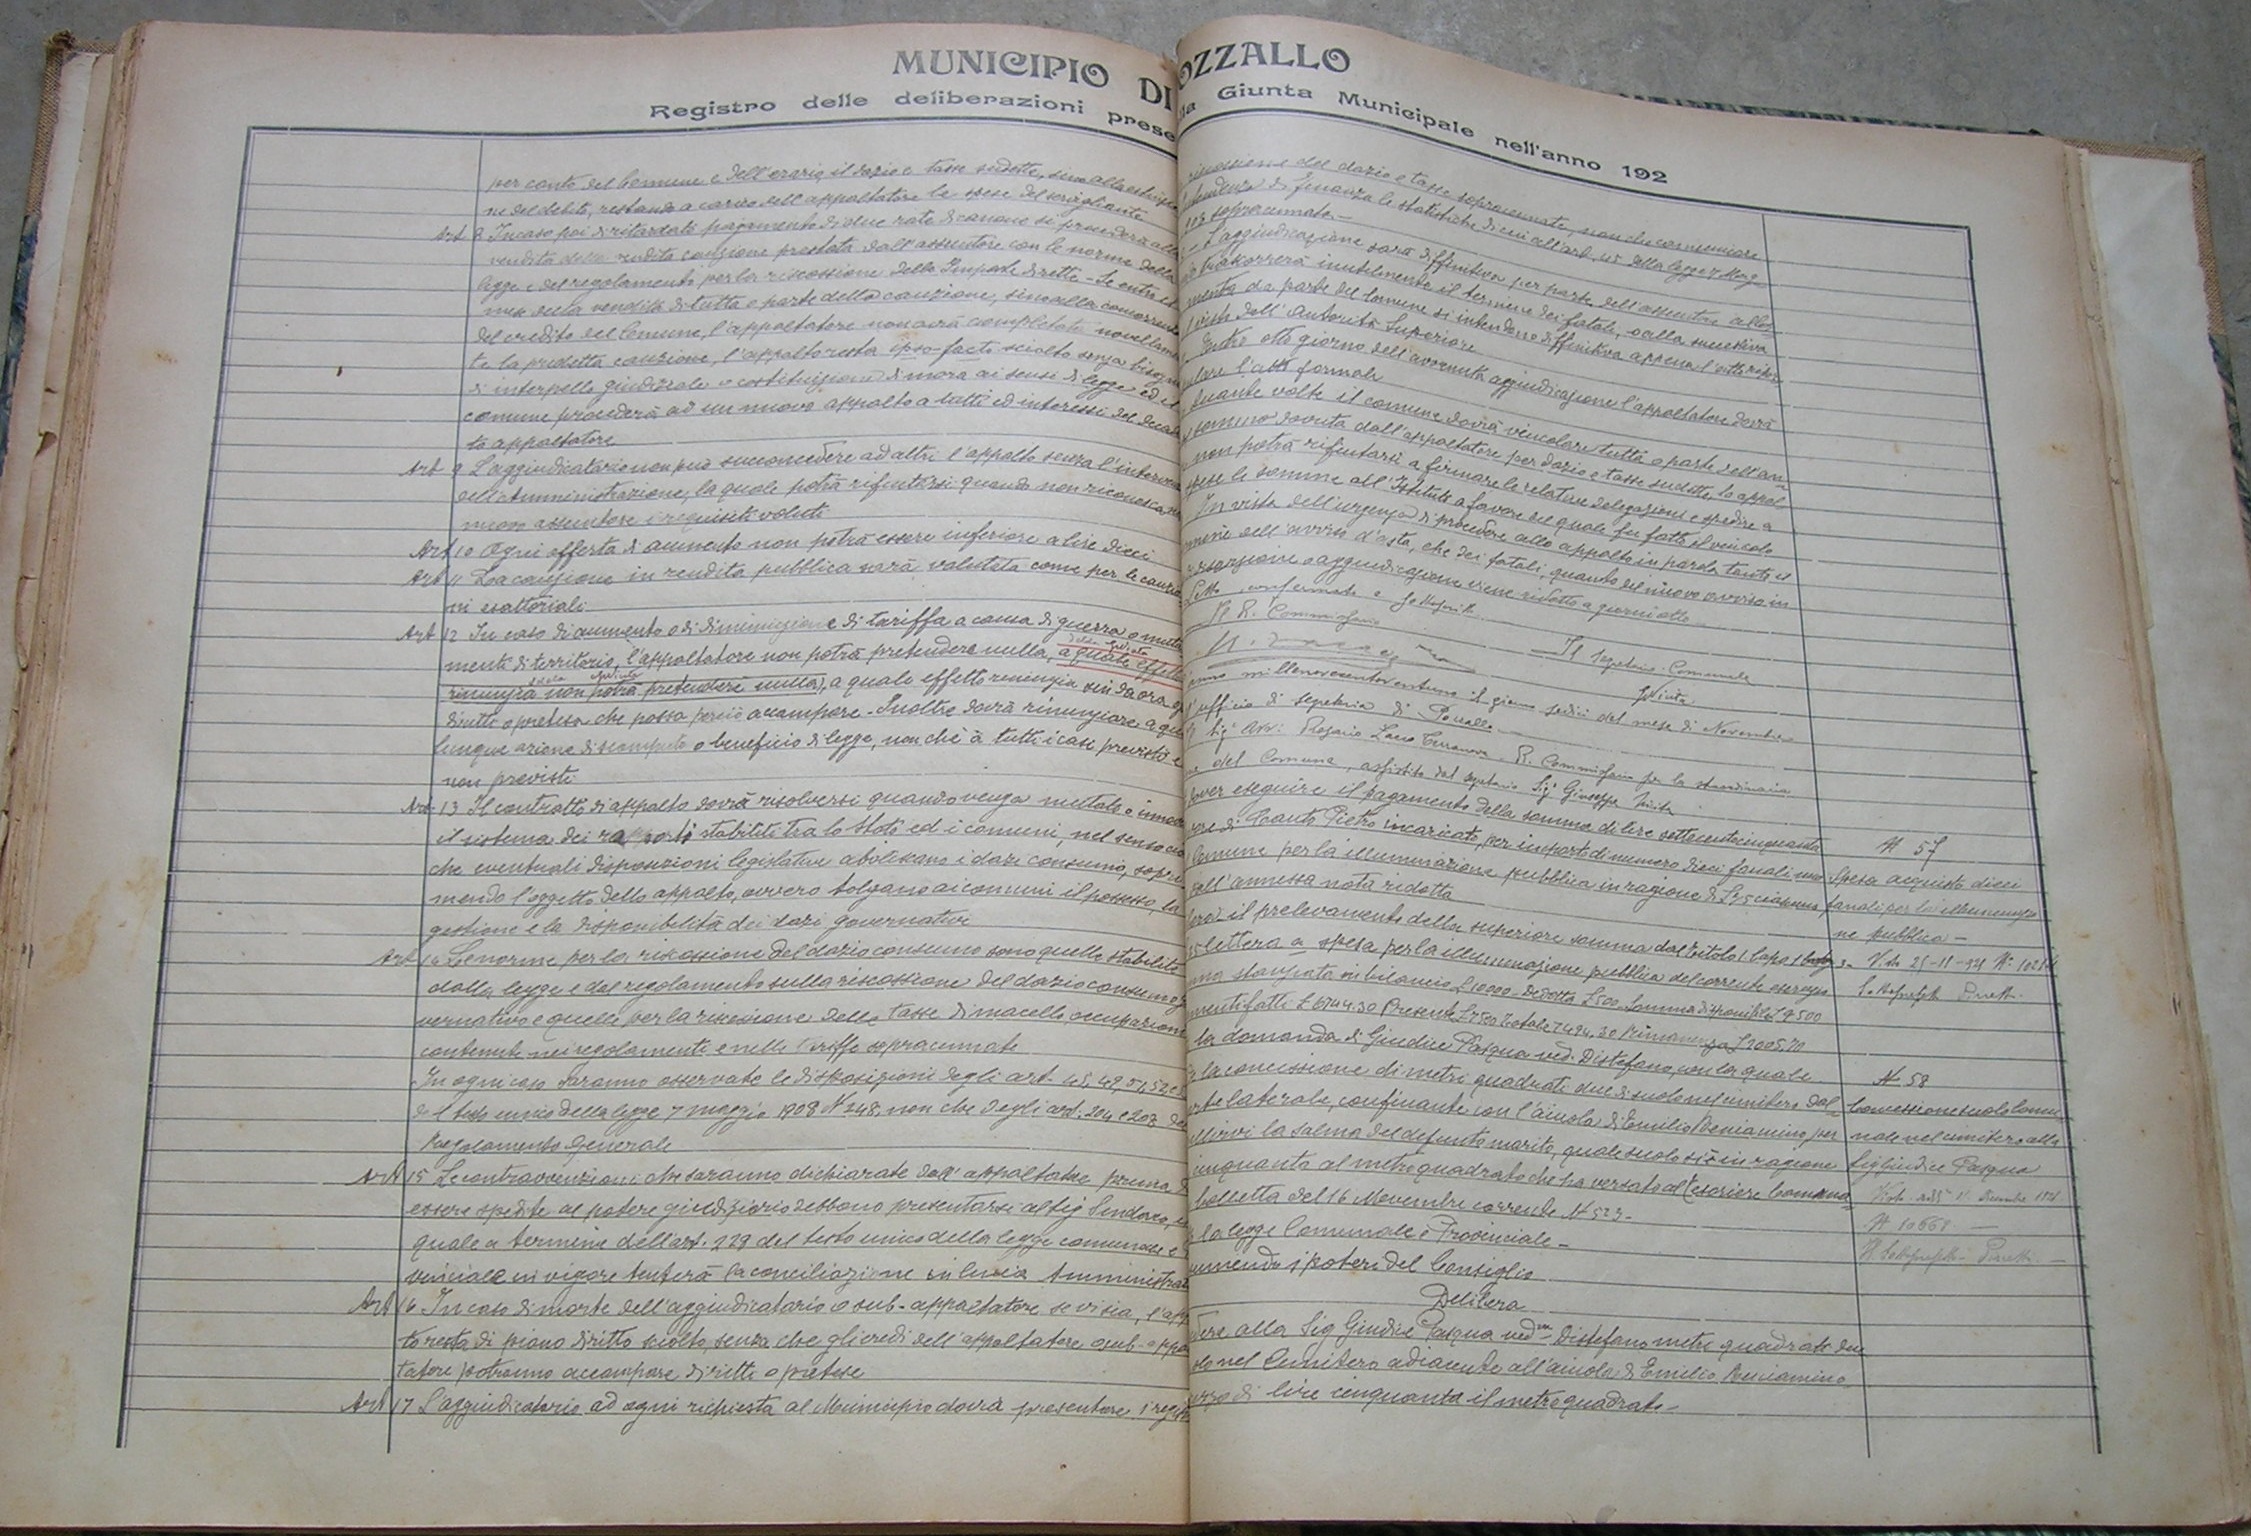 MUNICIPIO DI
Registro delle deliberazioni prese
per conto del Comune e dell'erario, il dazio e tasse sudette, sino alla
ne del debito, restando a carico dell'appaltatore le spese del sorvegliante
Art 8 In caso poi di ritardato pagamento di due rate di canone si procederà alla
vendita della rendita cauzione prestata dall'assuntore con le norme della
legge e del regolamento per la riscossione delle Imposte dirette - Se entro
mese della vendita di tutta o parte della cauzione, sino alla
del credito del Comune, l'appaltatore non avrà completata novellamen
te la predetta cauzione, l'appalto resta ipso-facto sciolto senza bisogno
di interpello giudiziale o costituzione di mora ai sensi di legge ed il
comune procederà ad un nuovo appalto a tutti ed interessi del
to appaltatore
Art 9 L'aggiudicatario non può succoncedere ad altri l'appalto senza l'interven
dell'Amministrazione, la quale potrà rifiutarsi quando non riconosca
nuovo assuntore i requisiti voluti
Art 10 Ogni offerta di aumento non potrà essere inferiore a lire dieci
Art 11 La cauzione in rendita pubblica sarà valutata come per le cauzio
ni esattoriali
Art 12 In caso di aumento o di diminuzione di tariffa a causa di guerra o muta
menti di territorio, l'appaltatore non potrà pretendere nulla, a quale effetto
rinunzia non potrà pretendere nulla), a quale effetto rinunzia sin da ora
diritto o pretesa che possa perciò accampare - Inoltre dovrà rinunziare a qua
lunque azione di scomputo o beneficio di legge, non che à tutti i casi previsti e
non previsti
Art 13 Il contratto di appalto dovrà risolversi quando venga mutato o
il sistema dei rapporti stabiliti tra lo Stato ed i comuni, nel senso cioè
che eventuali disposizioni legislative aboliscano i dazi consumo, sopri
mendo l'oggetto dello appalto, ovvero tolgano ai comuni il possesso, la
gestione e la disponibilità dei dazi governativi
Art 14 Le norme per la riscossione del dazio consumo sono quelle stabilite
dalla legge e dal regolamento sulla riscossione del dazio consumo go
vernativo e quelle per la riscossione delle tasse di macello, occupazione
contenute nei regolamenti e nelle tariffe sopracennate
In ogni caso saranno osservate le disposizioni degli art. 45, 49, 51, 52 e
del testo unico della legge 7 maggio 1908 N 248, non che degli art. 204 e 203 del
Regolamento Generale
Art 15 Le contravvenzioni che saranno dichiarate dall'appaltatore prima di
essere spedite al potere giudiziario debbono presentarsi al Sig Sindaco, il
quale a termine dell'art. 229 del testo unico della legge comunale e
vinciale in vigore tenterà la conciliazione in linea Amministrat
Art 16 In caso di morte dell'aggiudicatario o sub-appaltatore se vi sia, l'appal
to resta di pieno diritto sciolto, senza che gli eredi dell'appaltatore o sub-appal
tatore potranno accampare diritti o pretese
Art 17 L'aggiudicatario ad ogni richiesta al Municipio dovrà presentare i regi
OZZALLO
la Giunta Municipale nell'anno 192
riscossione del dazio e tasse sopracennate, non che comunicare
di finanza le statistiche di cui all'art. 45 della legge 7 Mag
sopracennata -
L'aggiudicazione sarà diffinitiva per parte dell'assuntore allor
trascorrerà inutilmente il termine dei fatali, o alla successiva
da parte del Comune si intenderà diffinitiva appena l'atto
visto dell'Autorità Superiore
Entro otto giorno dell'avvenuta aggiudicazione l'appaltatore dovrà
l'atto formale
Quante volte il comune dovrà vincolare tutta o parte dell'an
dovuta dall'appaltatore per dazio e tasse sudette, lo appal
non potrà rifiutarsi a firmare le relative delegazioni e spedire a
spese le somme all'Istituto a favore del quale fu fatto il vincolo
In vista dell'urgenza di procedere allo appalto in parola tanto il
dell'avviso d'asta, che dei fatali, quanto del nuovo avviso in
aggiudicazione viene ridotto a giorni otto
Letto, confermato e sottoscritto
Il R. Commissario
Il Segretario Comunale
millenovecentoventuno il giorno sedici del mese di Novembre
ufficio di segreteria di Pozzallo
Sig. Avv. Rosario Terranova, R. Commissario per la straordinaria
del Comune, assistito dal segretario Sig. Giuseppe
dover eseguire il pagamento della somma di lire settecentocinquanta
Pietro incaricato, per importo di numero dieci fanali
Comune per la illuminazione pubblica in ragione di £ 75 ciascuno
dell'annessa nota ridotta
il prelevamento della superiore somma dal Titolo I Capo I
lettera a spesa per la illuminazione pubblica del corrente esercizio
stanziata in bilancio £ 10000 - Dedotta £ 500 - Somma disponibile £ 9500
menti fatti £ 6744.30 Presente £ 750 Totale 7494.30 Rimanenza £ 2005.70
la domanda di Giudice Pasqua ved. Distefano, con la quale
la concessione di metri quadrati due di suolo nel cimitero dal
laterale, confinante con l'aiuola di Emilio Beniamino per
la salma del defunto marito, quale suolo
cinquanta al metro quadrato che ha versato al Tesoriere Comuna
bolletta del 16 Novembre corrente N 523 -
la legge Comunale e Provinciale -
i poteri del Consiglio
Delibera
alla Sig Giudice Pasqua ved. Distefano metri quadrati due
nel Cimitero adiacente all'aiuola di Emilio Beniamino
di lire cinquanta il metro quadrato -
N 57
Spesa acquisto dieci
fanali per la illuminazio
ne pubblica -
Visto 25-11-921
Sottoprefetto
N. 58
Concessione suolo comu
nale nel cimitero alla
Sig Giudice Pasqua
Dicembre 1921
N 10668
Il Sottoprefetto